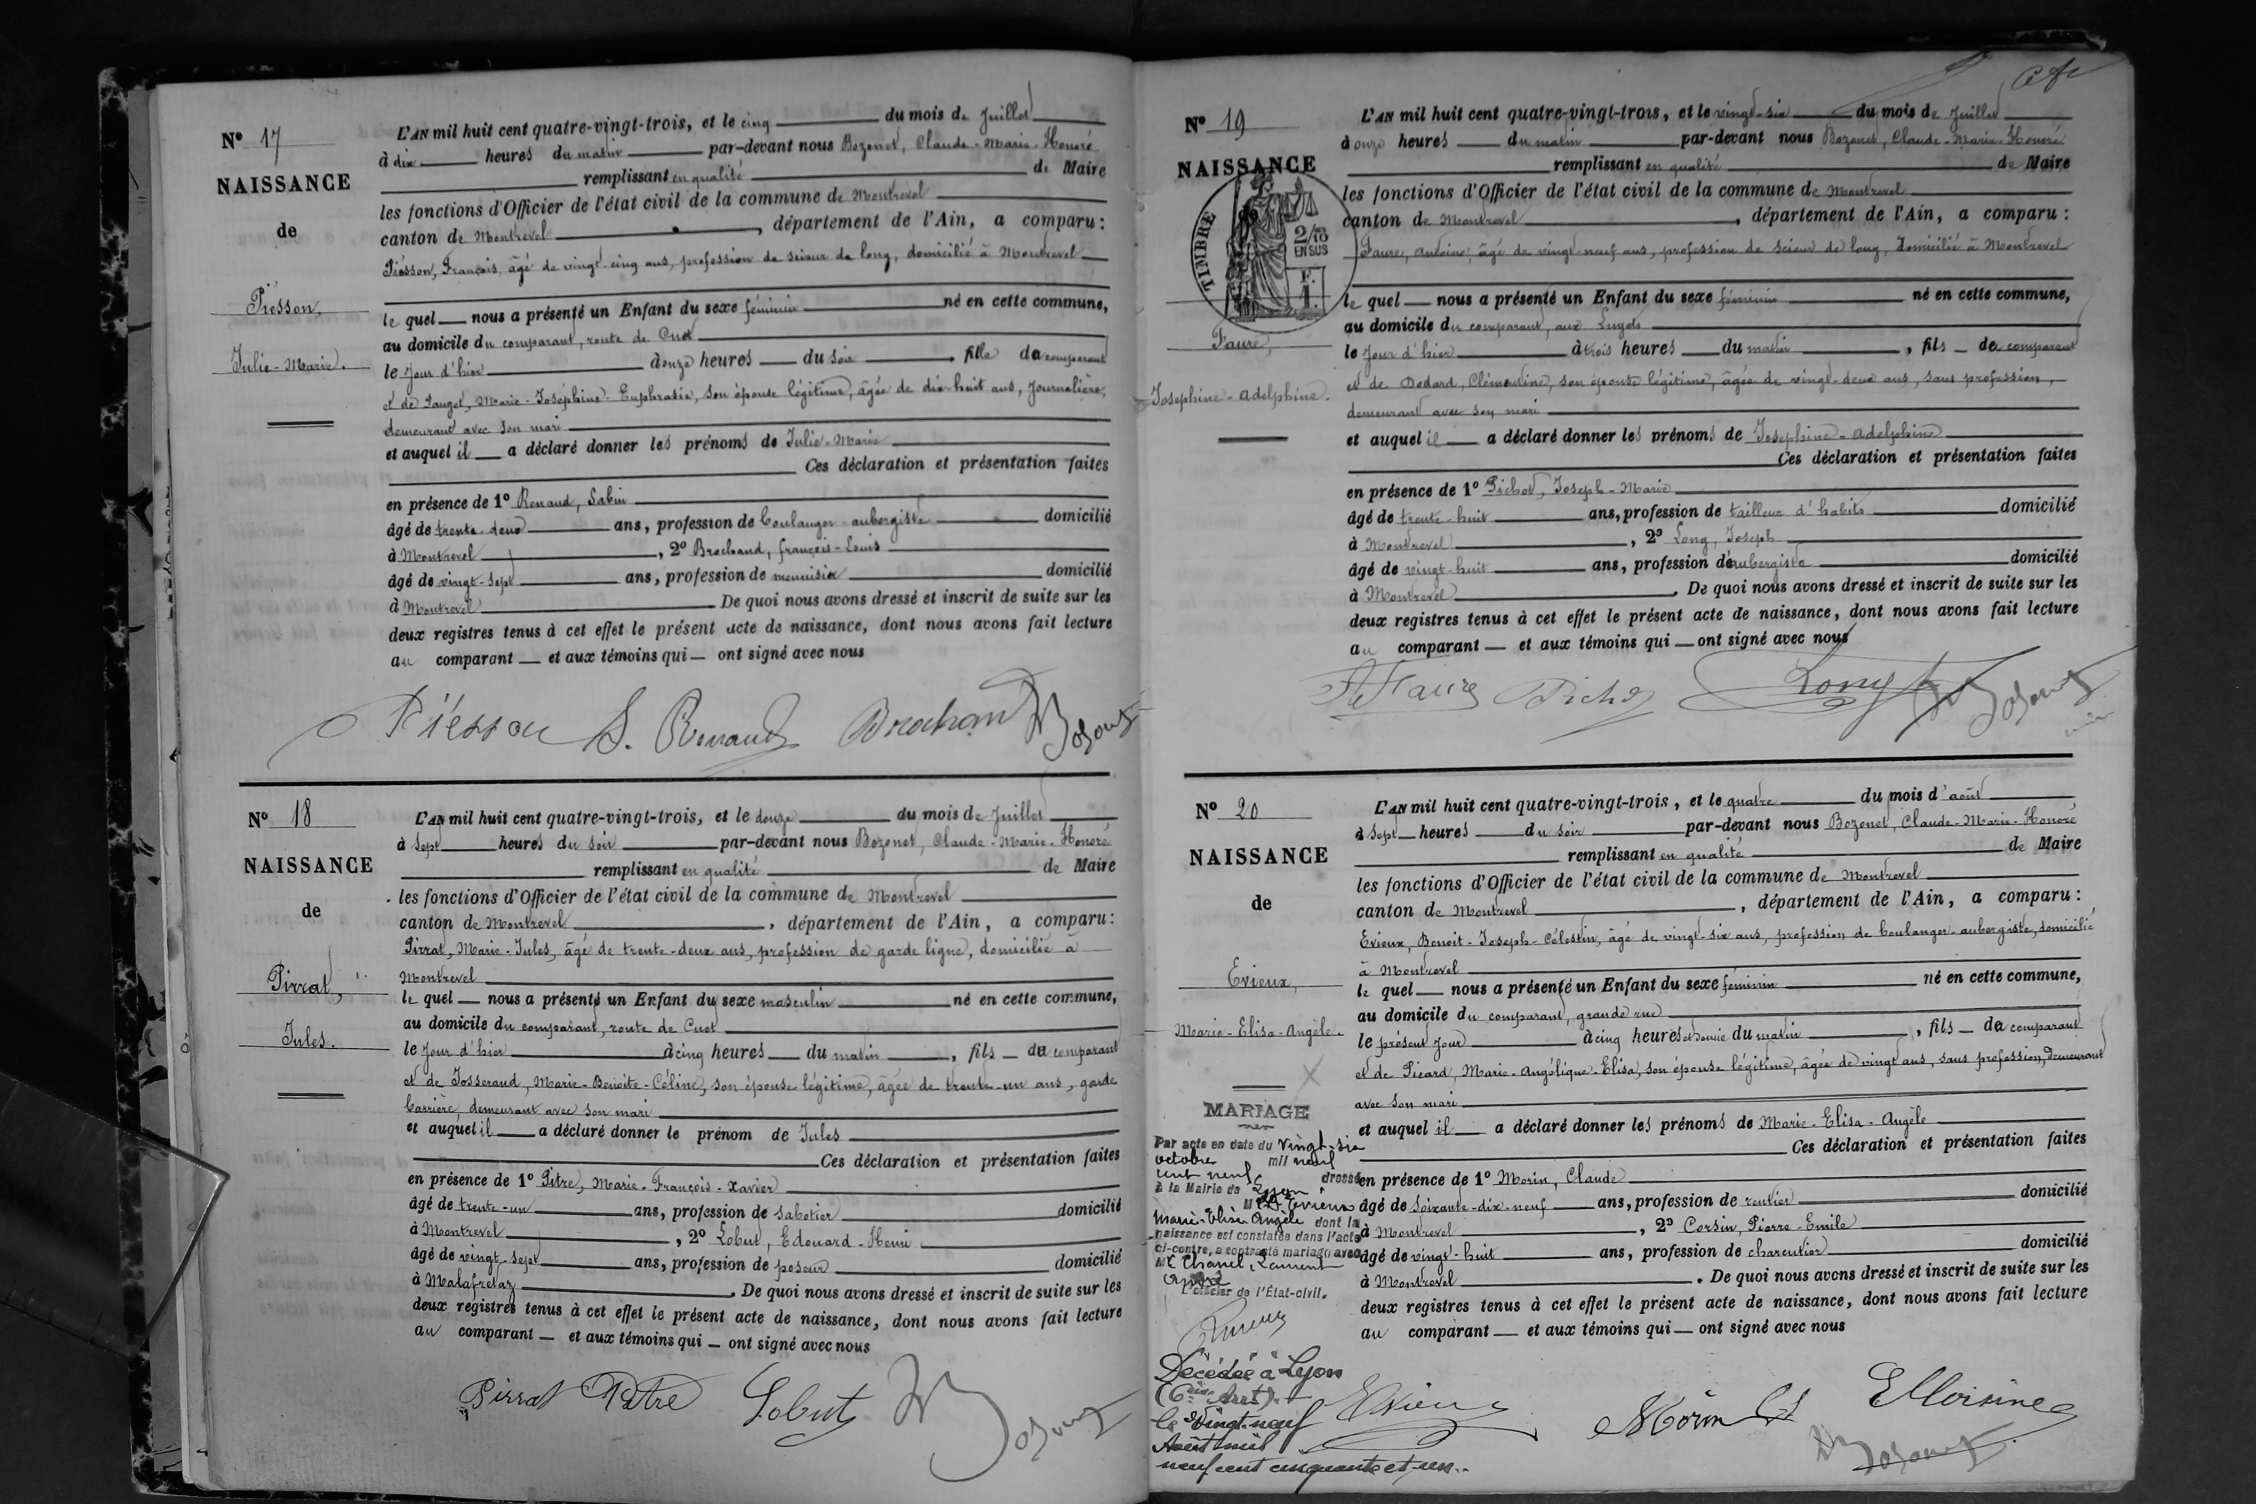 N° 17
NAISSANCE
de
Piésson,
Julie-Marie.
L'AN mil huit cent quatre-vingt-trois, et le cinq du mois de Juillet
à dix heures du matin par-devant nous Bozonet, Claude-Marie-Honoré
remplissant en qualité de Maire
les fonctions d'Officier de l'état civil de la commune de Montrevel
canton de Montrevel, département de l'Ain, a comparu:
Piésson, François, âgé de vingt-cinq ans, profession de scieur de long, domicilié à Montrevel
le quel nous a présenté un Enfant du sexe féminin né en cette commune,
au domicile du comparant, route de Cuet
le Jour d'hier à onze heures du soir, fille du comparant
et de Pauget, Marie-Joséphine-Euphrasie, son épouse légitime, âgée de dix-huit ans, Journalière,
demeurant avec son mari
et auquel il a déclaré donner les prénoms de Julie-Marie
Ces déclaration et présentation faites
en présence de 1° Renaud, Sabin
âgé de trente-deux ans, profession de boulanger-aubergiste domicilié
à Montrevel, 2° Brochand, françois-Louis
âgé de vingt-sept ans, profession de menuisier domicilié
à Montrevel De quoi nous avons dressé et inscrit de suite sur les
deux registres tenus à cet effet le présent acte de naissance, dont nous avons fait lecture
au comparant et aux témoins qui ont signé avec nous
Piésson S. Renaud Brochand Bozonet
N° 18
NAISSANCE
de
Pirrat,
Jules.
L'AN mil huit cent quatre-vingt-trois, et le douze du mois de Juillet
à Sept heures du soir par-devant nous Bozonet, Claude-Marie-Honoré
remplissant en qualité de Maire
les fonctions d'Officier de l'état civil de la commune de Montrevel
canton de Montrevel, département de l'Ain, a comparu:
Pirrat, Marie-Jules, âgé de trente-deux ans, profession de garde ligne, domicilié à
Montrevel
le quel nous a présenté un Enfant du sexe masculin né en cette commune,
au domicile du comparant, route de Cuet
le Jour d'hier à cinq heures du matin, fils du comparant
et de Josserand, Marie-Benoite-Céline, son épouse légitime, âgée de trente-un ans, garde
barrière, demeurant avec son mari
et auquel il a déclaré donner le prénom de Jules
Ces déclaration et présentation faites
en présence de 1° Pitre, Marie-François-Xavier
âgé de trente-un ans, profession de sabotier domicilié
à Montrevel, 2° Lobut, Edouard-Henri
âgé de vingt-sept ans, profession de poseur domicilié
à Malafretaz. De quoi nous avons dressé et inscrit de suite sur les
deux registres tenus à cet effet le présent acte de naissance, dont nous avons fait lecture
au comparant et aux témoins qui ont signé avec nous
Pirrat Pitre Lobut Bozonet
N° 19
NAISSANCE
TIMBRE
2/10
EN SUS
Faure,
Josephine-Adelphine.
L'AN mil huit cent quatre-vingt-trois, et le vingt-six du mois de Juillet
à onze heures du matin par-devant nous Bozonet, Claude-Marie-Honoré
remplissant en qualité de Maire
les fonctions d'Officier de l'état civil de la commune de Montrevel
canton de Montrevel, département de l'Ain, a comparu:
Faure, Antoine, âgé de vingt-neuf ans, profession de scieur de long, domicilié à Montrevel
le quel nous a présenté un Enfant du sexe féminin né en cette commune,
au domicile du comparant, aux Luyets
le Jour d'hier à trois heures du matin, fils du comparant
et de Dodard, Clémentine, son épouse légitime, âgée de vingt-deux ans, sans profession,
demeurant avec son mari
et auquel il a déclaré donner les prénoms de Josephine-Adelphine
Ces déclaration et présentation faites
en présence de 1° Pichot, Joseph-Marie
âgé de trente-huit ans, profession de tailleur d'habits domicilié
à Montrevel, 2° Long, Joseph
âgé de vingt-huit ans, profession d'aubergiste domicilié
à Montrevel. De quoi nous avons dressé et inscrit de suite sur les
deux registres tenus à cet effet le présent acte de naissance, dont nous avons fait lecture
au comparant et aux témoins qui ont signé avec nous
Faure Pichot Long Bozonet
N° 20
NAISSANCE
de
Evieux,
Marie-Elisa-Angèle.
MARIAGE
Par acte en date du vingt-six
octobre mil neuf
cent neuf dressé
à la Mairie de Lyon
Mlle Evieux
Marie-Elisa Angèle dont la
naissance est constatée dans l'acte
ci-contre, a contracté mariage avec
Mr Chanel, Laurent
André
L'officier de l'État-civil.
Décédée à Lyon
(6ème Arrt)
le vingt-neuf
Août mil
neuf cent cinquante et un.
L'AN mil huit cent quatre-vingt-trois, et le quatre du mois d'août
à Sept heures du soir par-devant nous Bozonet, Claude-Marie-Honoré
remplissant en qualité de Maire
les fonctions d'Officier de l'état civil de la commune de Montrevel
canton de Montrevel, département de l'Ain, a comparu:
Evieux, Benoit-Joseph-Célestin, âgé de vingt-six ans, profession de boulanger-aubergiste, domicilié
à Montrevel
le quel nous a présenté un Enfant du sexe féminin né en cette commune,
au domicile du comparant, grande rue
le présent Jour à cinq heures et demie du matin, fils du comparant
et de Picard, Marie-Angélique-Elisa, son épouse légitime, âgée de vingt ans, sans profession, demeurant
avec son mari
et auquel il a déclaré donner les prénoms de Marie-Elisa-Angèle
Ces déclaration et présentation faites
en présence de 1° Morin, Claude
âgé de Soixante-dix-neuf ans, profession de rentier domicilié
à Montrevel, 2° Corsin, Pierre-Emile
âgé de vingt-huit ans, profession de charcutier domicilié
à Montrevel. De quoi nous avons dressé et inscrit de suite sur les
deux registres tenus à cet effet le présent acte de naissance, dont nous avons fait lecture
au comparant et aux témoins qui ont signé avec nous
Evieux Morin Bozonet